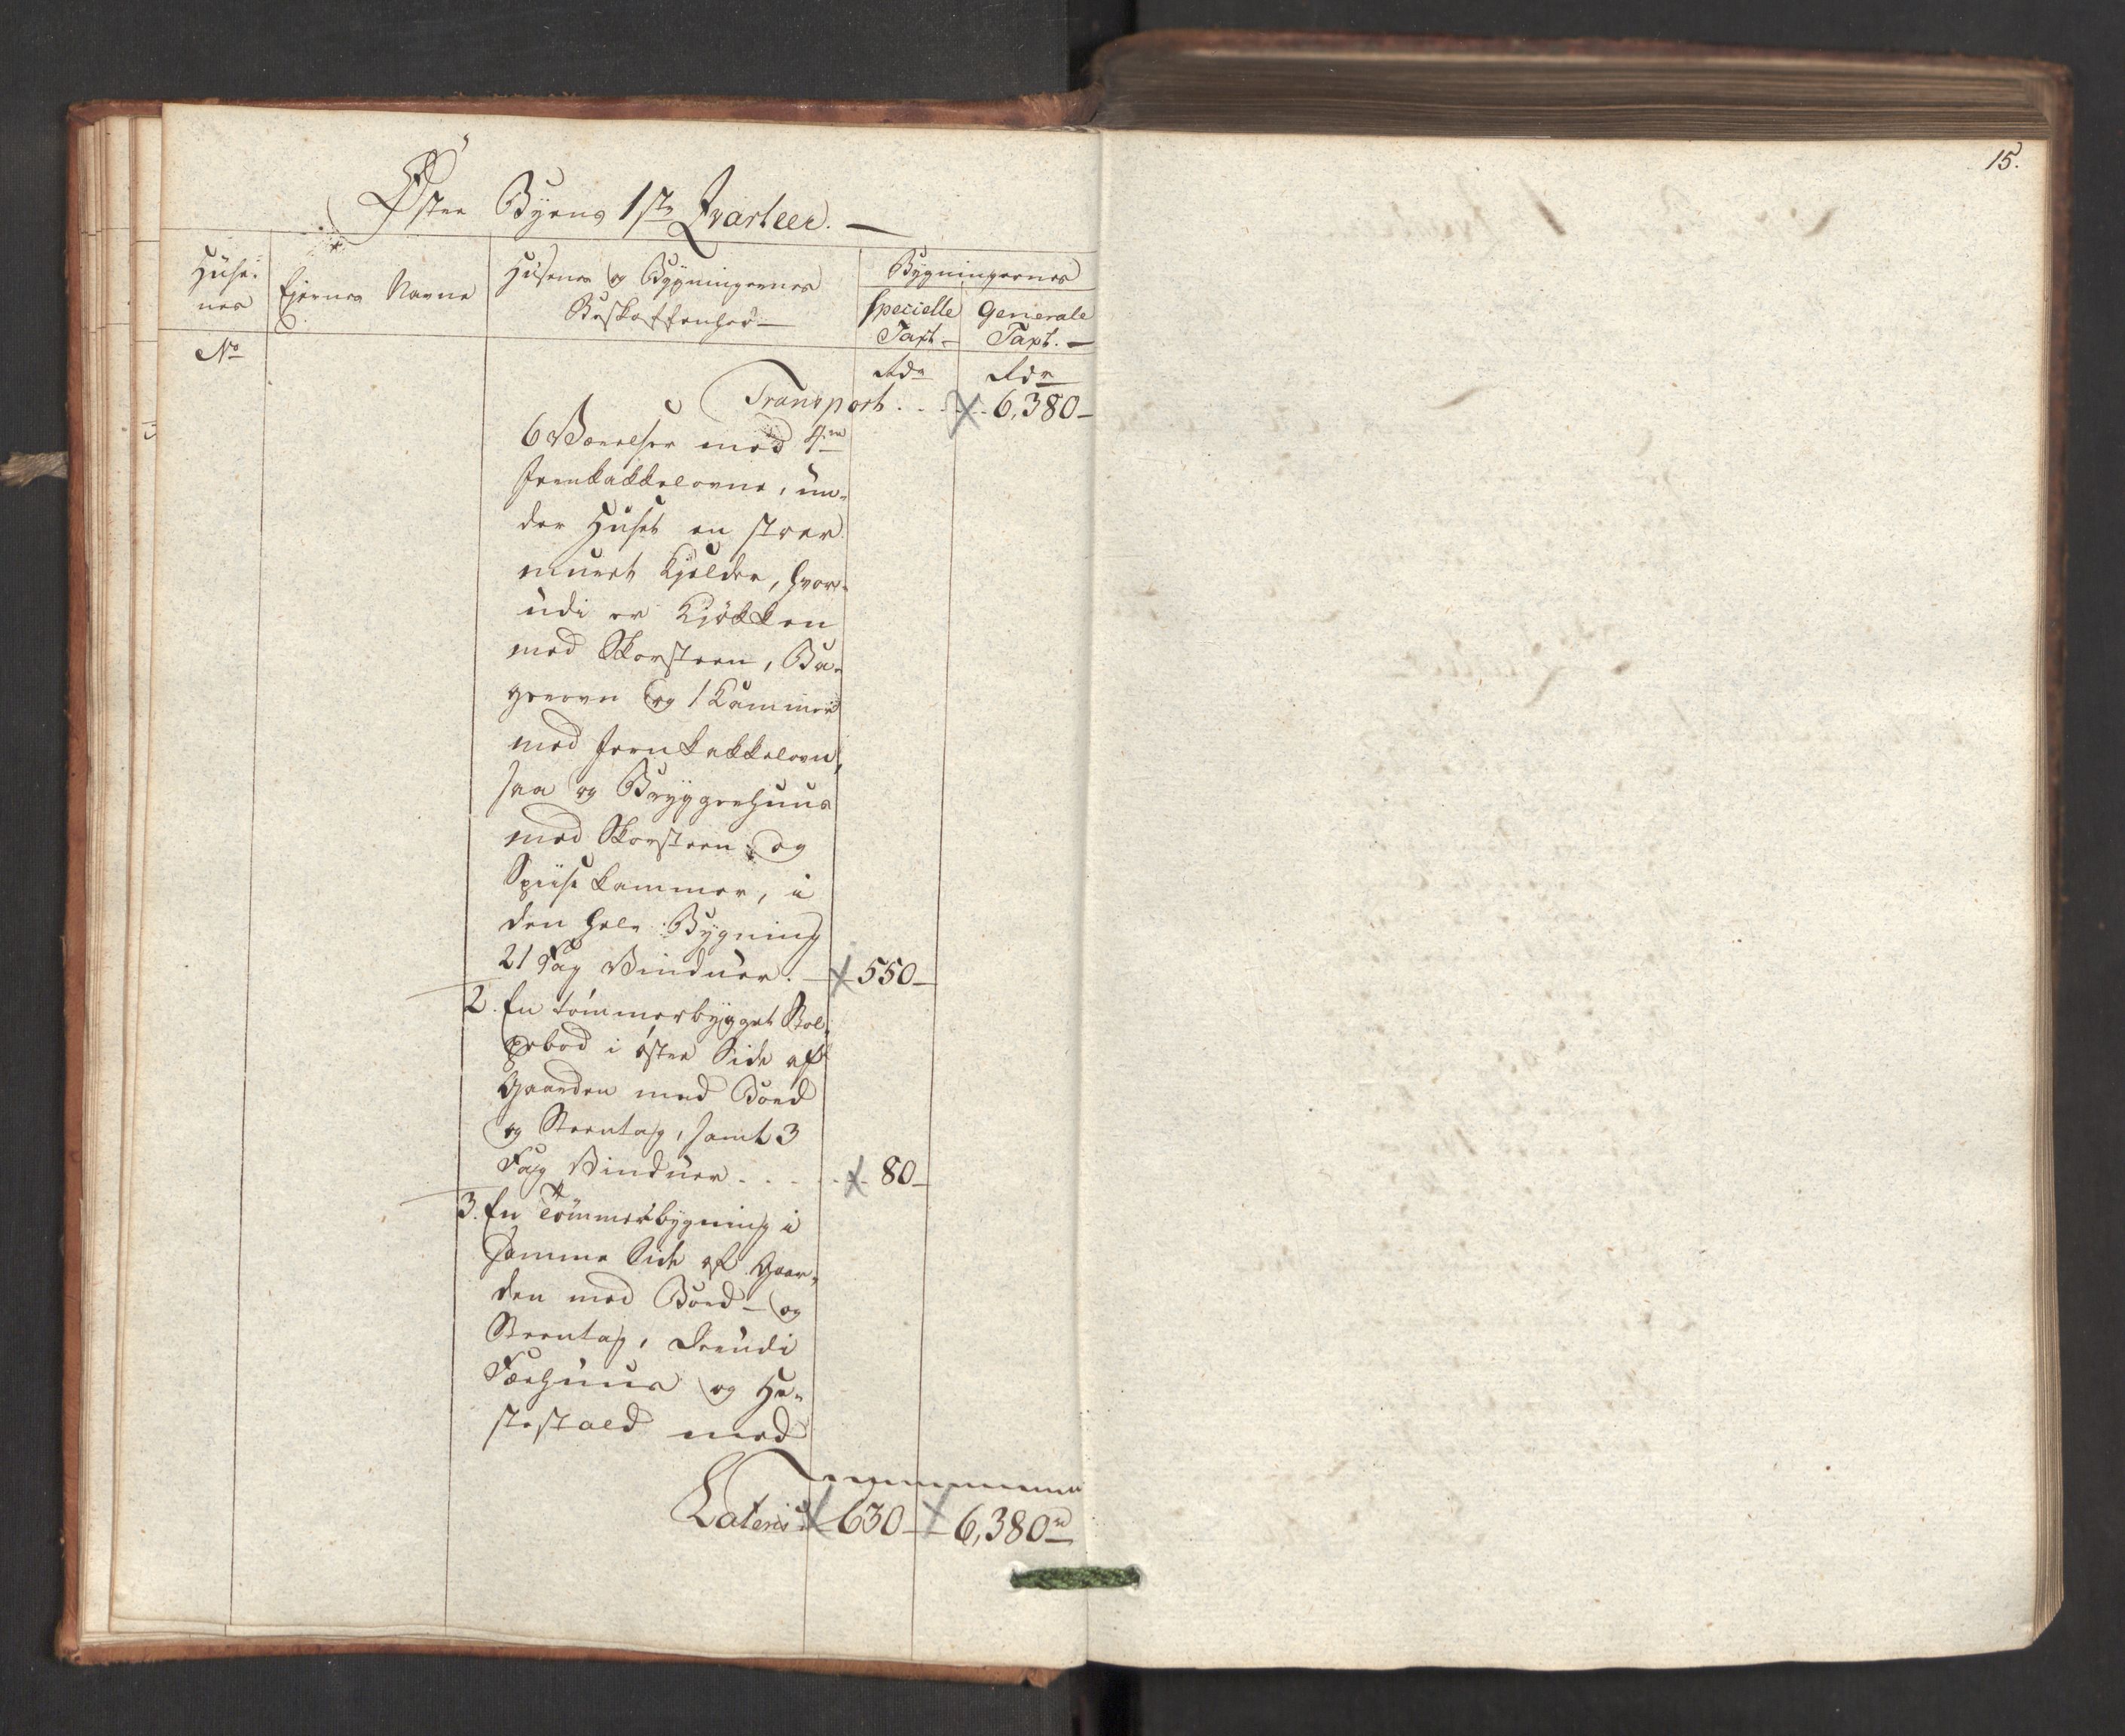 15.
Øster Byens 1ste Qvarteer. —
Huse-
nes
Ejernes Navne
Husenes og Bygningernes
Beskaffenhed —
Bygningernes
Specielle
Taxt —
Generale
Taxt. —
No
Rdr
Rdr
Transport . . . 6,380 —
6 Værelser med 4re
Jernkakkelovne, un-
der Huset en stoer
muret Kjelder, hvor-
udi er Kjøkken
med Skorsteen, Ba-
gerovn og 1 Kammer
med Jernkakkelovn,
saa og Bryggerhuus
med Skorsteen og
Spiisekammer, i
den hele Bygning
21 Fag Vinduer. — 550 —
2. En tømmerbygget Bol-
bod i øster Side af
Gaarden med Bord
og Steentag, samt 3
Fag Vinduer . . . . . 80 —
3. En Tømmerbygning i
samme Side af Gaar-
den med Bord- og
Steentag, derudi
Fæehuus og He-
stestald med
Lateris 630 — 6,380 rd